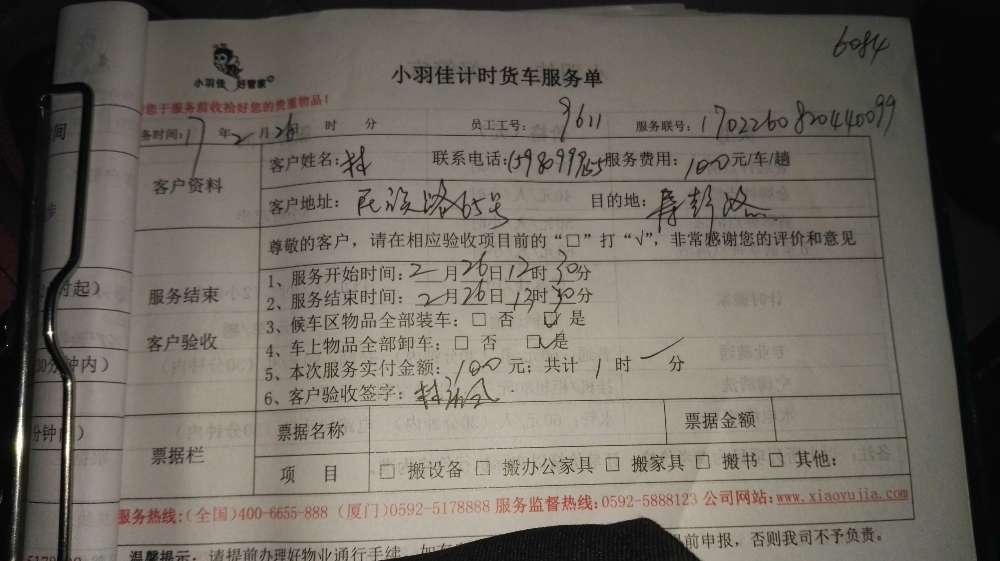 6084
小羽佳 好管家
小羽佳计时货车服务单
您于服务前收拾好您的贵重物品！
务时间：17 年 2 月 26 时 分 员工工号：9611 服务联号：1702260820440099
客户资料 客户姓名：林 联系电话：15980999655 服务费用：100元/车/趟
客户地址：民族路65号 目的地：
尊敬的客户，请在相应验收项目前的“□”打“√”，非常感谢您的评价和意见
服务结束
客户验收
1、服务开始时间：2月26日12时30分
2、服务结束时间：2月26日13时30分
3、候车区物品全部装车：□ 否 ☑ 是
4、车上物品全部卸车：□ 否 ☑ 是
5、本次服务实付金额：100 元；共计 1 时 一 分
6、客户验收签字：林
票据栏 票据名称 票据金额
项 目 □ 搬设备 □ 搬办公家具 □ 搬家具 □ 搬书 □ 其他：
服务热线：(全国)400-6655-888 (厦门)0592-5178888 服务监督热线：0592-5888123 公司网站：www.xiaoyujia.com
温馨提示：请提前办理好物业通行手续，如有 前申报，否则我司不予负责。
间
时起）
0分钟内）
分钟内）